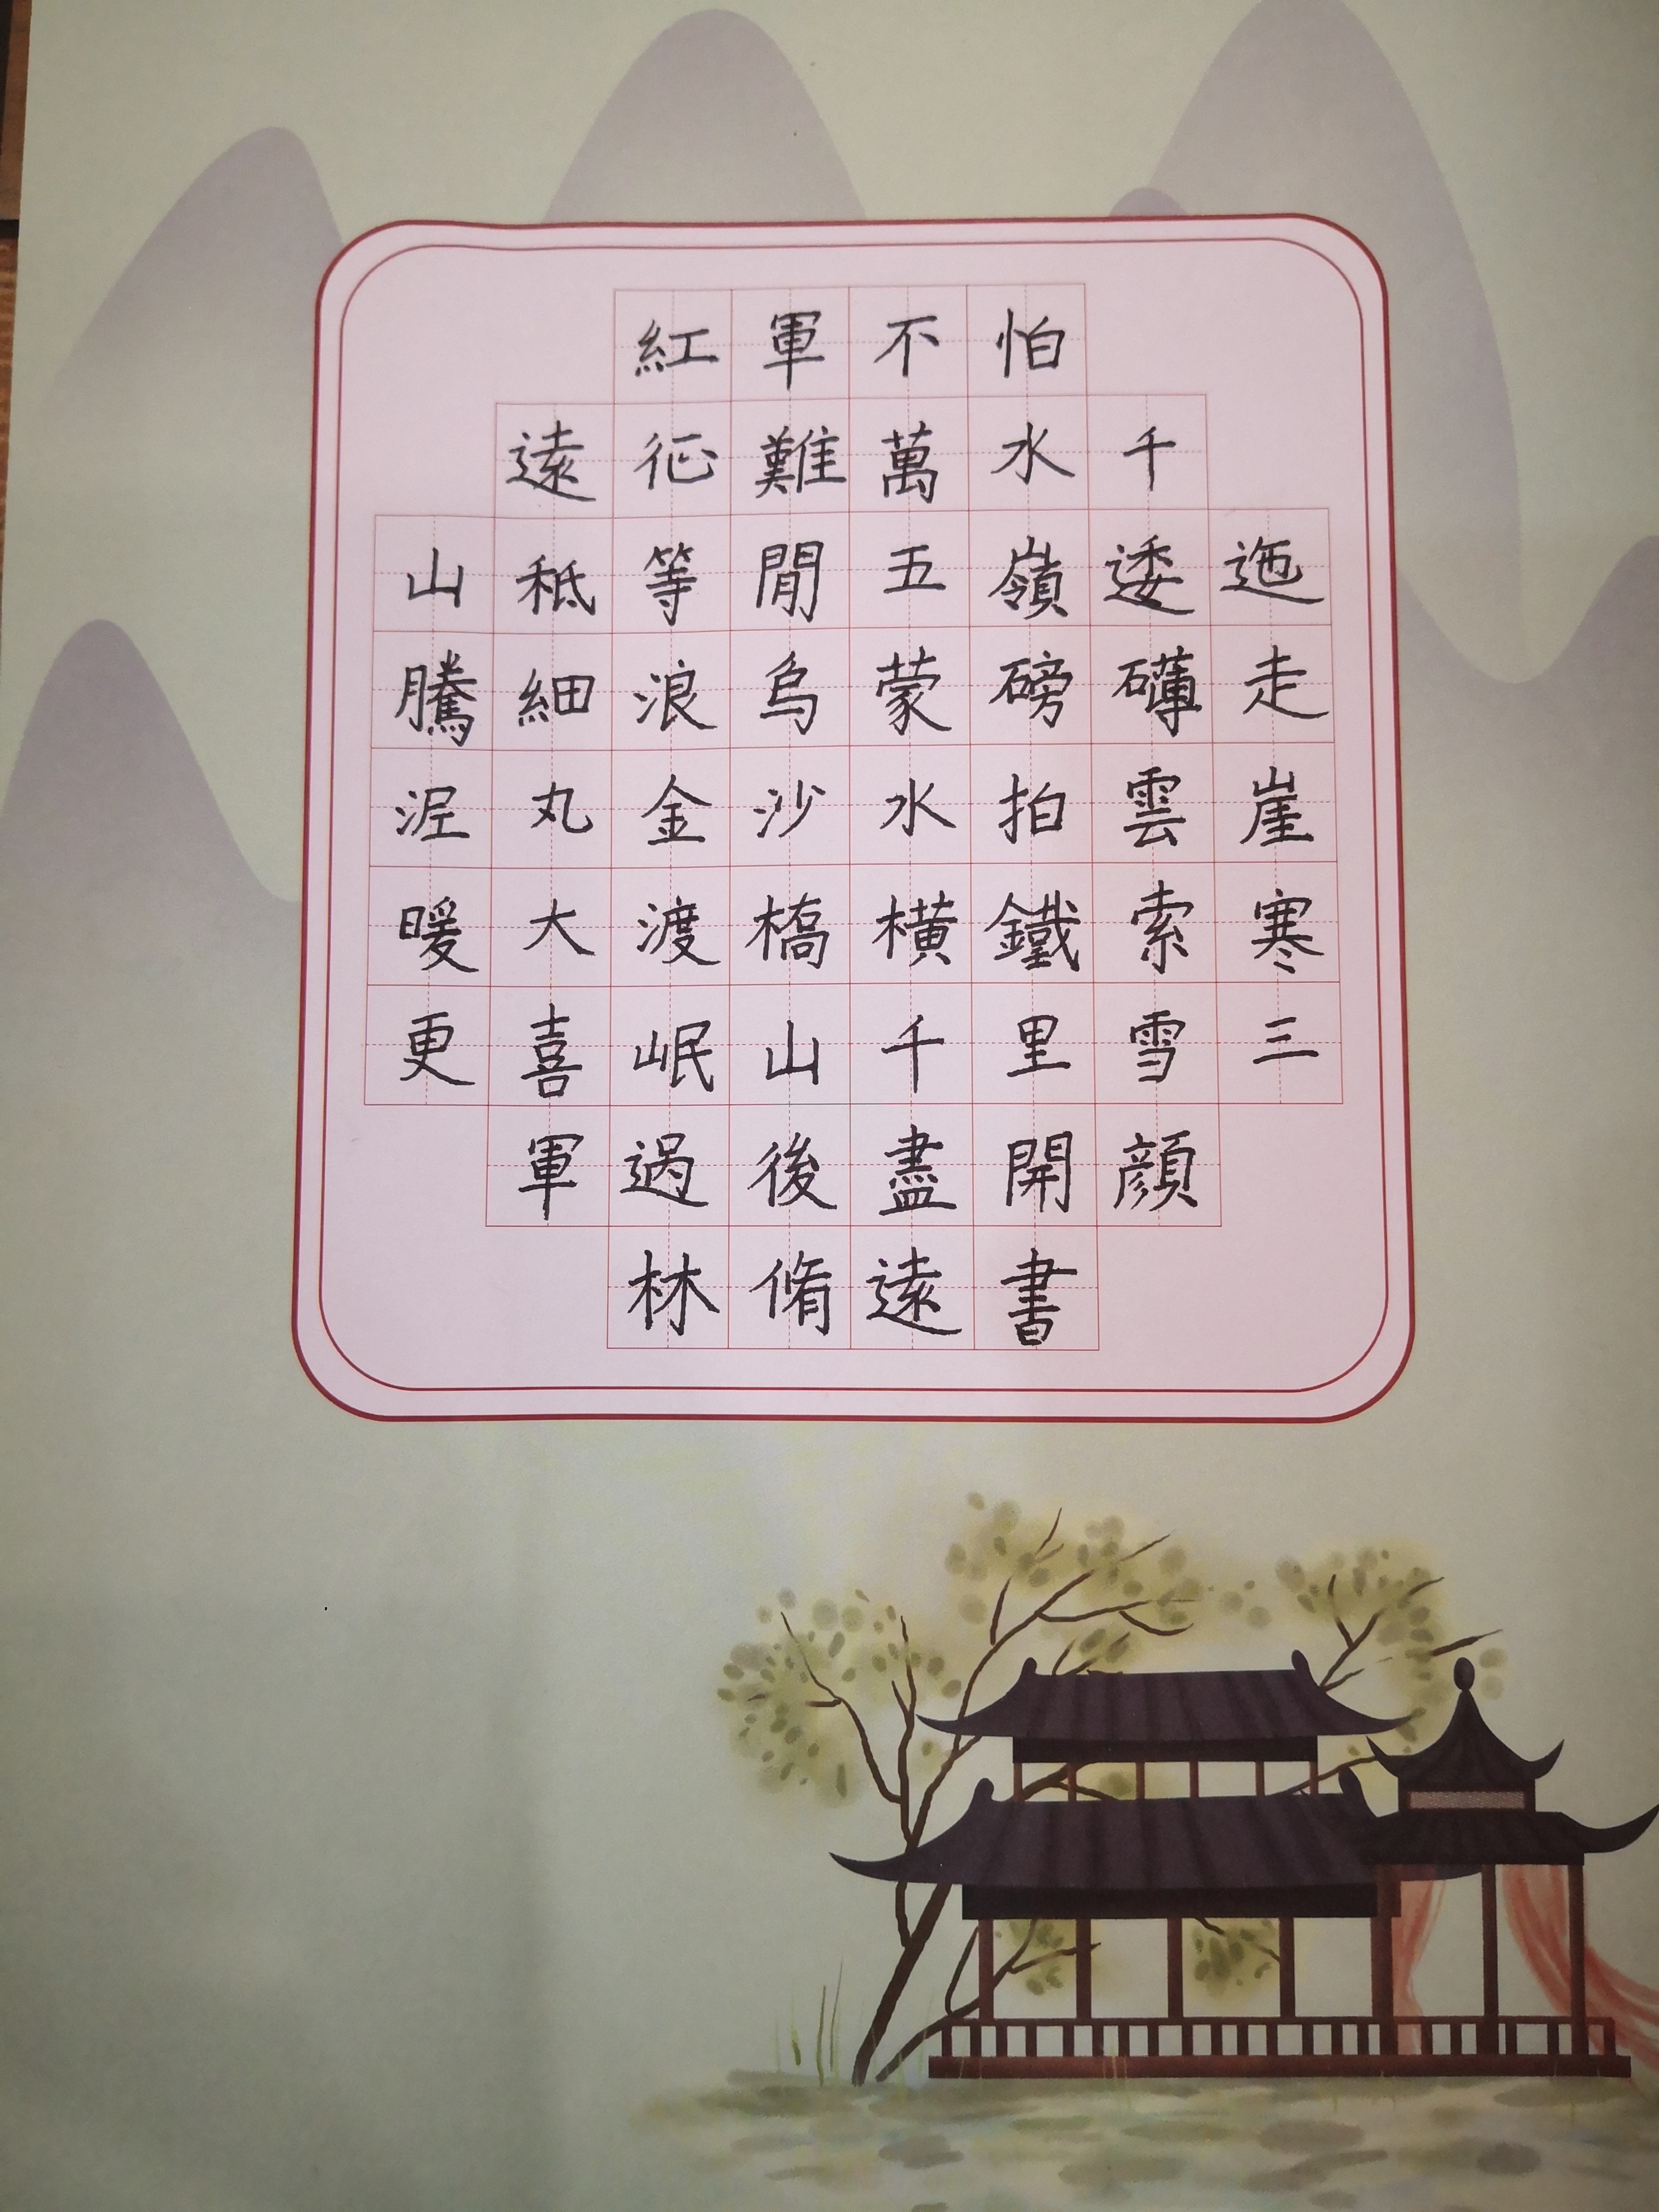 紅軍不怕
遠征難萬水千
山秖等閒五嶺逶迤
騰細浪烏蒙磅礴走
泥丸金沙水拍雲崖
暖大渡橋橫鐵索寒
更喜岷山千里雪三
軍過後盡開顏
林脩遠書